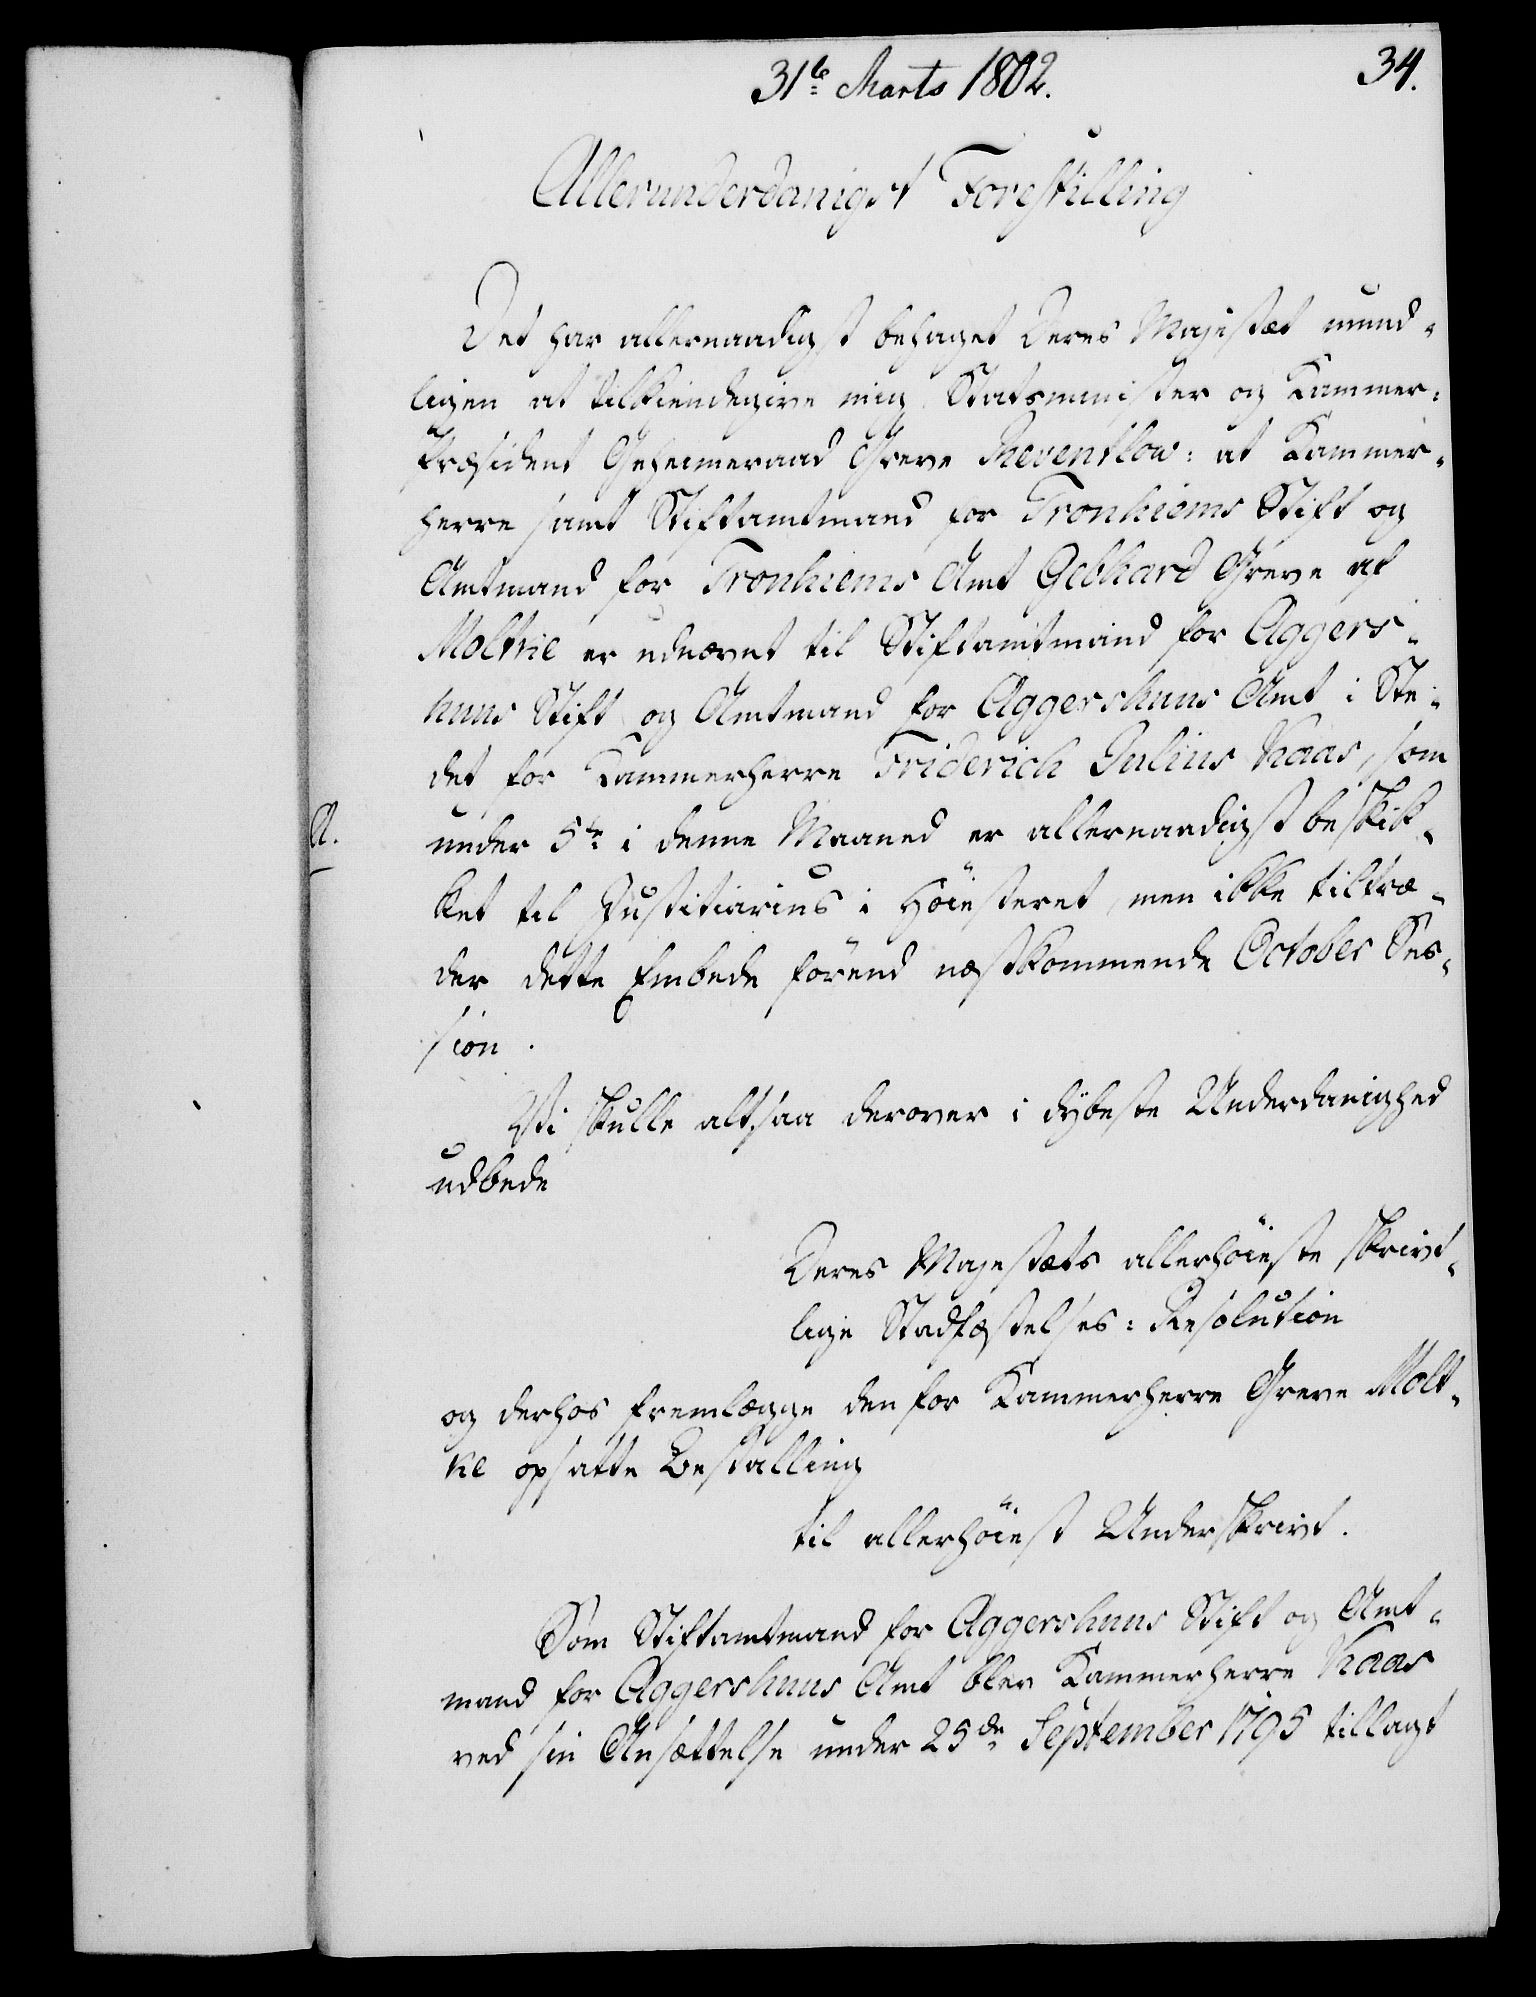 31te Marts 1802.
34.
Allerunderdanigst Forestilling
Det har allernaadigst behaget Deres Majestæt mund-
ligen at tilkiendegive mig Statsminister og Kammer-
Præsident Geheimeraad Greve Reventlow: at Kammer-
herre samt Stiftamtmand for Tronhiems Stift og
Amtmand for Tronhiems Amt Gebhard Greve af
Moltke er udnævnt til Stiftamtmand for Aggers-
huus Stift og Amtmand for Aggershuus Amt i Ste-
det for Kammerherre Friderich Julius Kaas, som
A.
under 5te i denne Maaned er allernaadigst beskik-
ket til Justitiarius i Höiesteret, men ikke tiltræ-
der dette Embede förend næstkommende October Ses-
sion.
Vi skulle altsaa derover i dybeste Underdanighed
udbede
Deres Majestæts allerhöieste skrivt-
lige Stadfæstelses: Resolution
og derhos fremlægge den for Kammerherre Greve Molt-
ke opsatte Bestalling
til allerhöiest Underskrivt.
Som Stiftamtmand for Aggershuus Stift og Amt-
mand for Aggershuus Amt blev Kammerherre Kaas
ved sin Ansættelse under 25de September 1795 tillagt